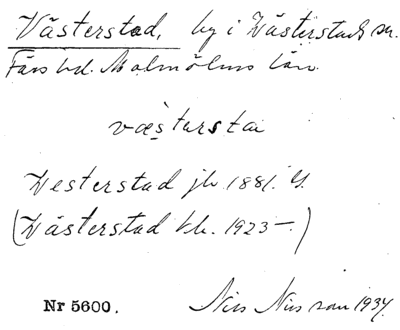 Västerstad, by i Västerstads sn.
Färs hd. Malmöhus län.
væstursta
Westerstad jb 1881.
(Västerstad kb. 1923–.)
Nr 5600. Nils Nilsson 1934.